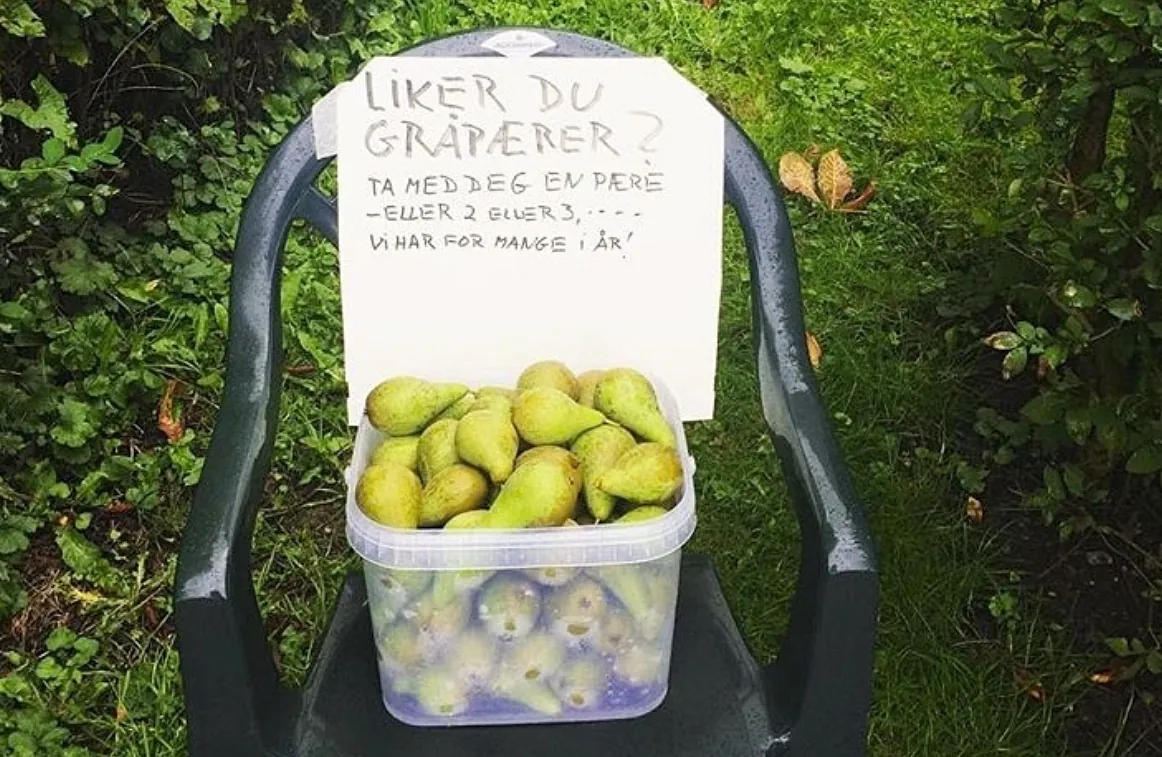 LIKER DU
GRÅPÆRER?
TA MED DEG EN PÆRE
-ELLER 2 ELLER 3,----
Vi HAR FOR MANGE i ÅR!